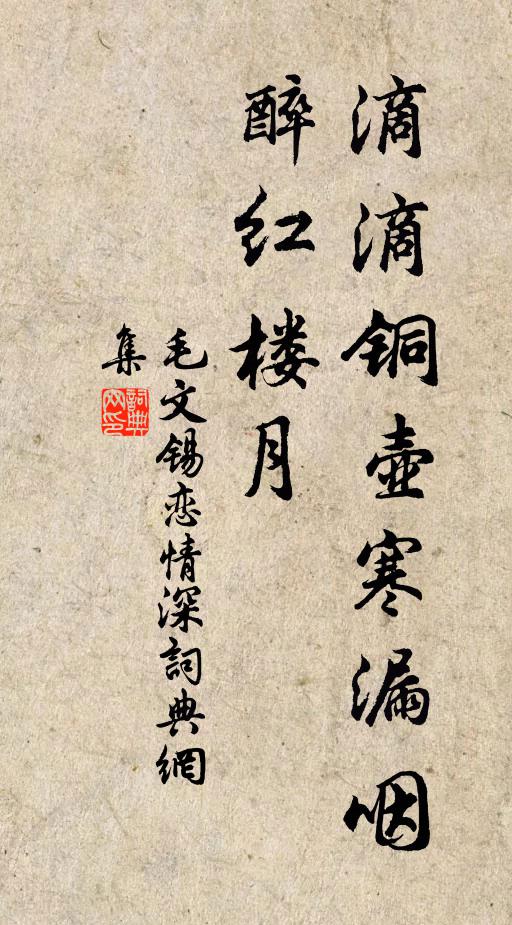 滴滴铜壶寒漏咽
醉红楼月
毛文锡恋情深詞典網
集
詞典
网印